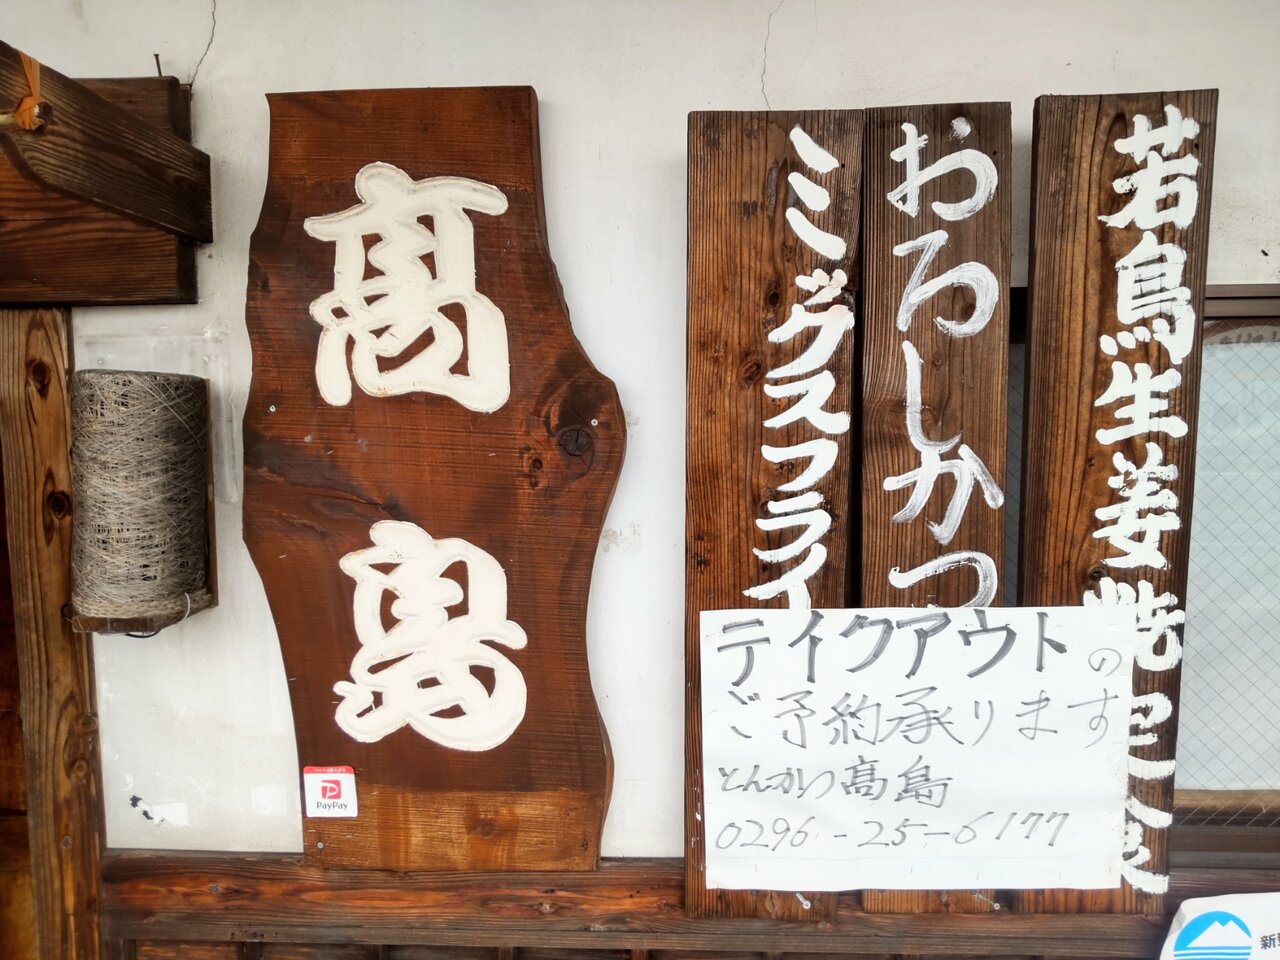 髙島
PayPay
若鳥生姜焼定食
おろしかつ
ミックスフライ
テイクアウトの
ご予約承ります
とんかつ髙島
0296-25-6177